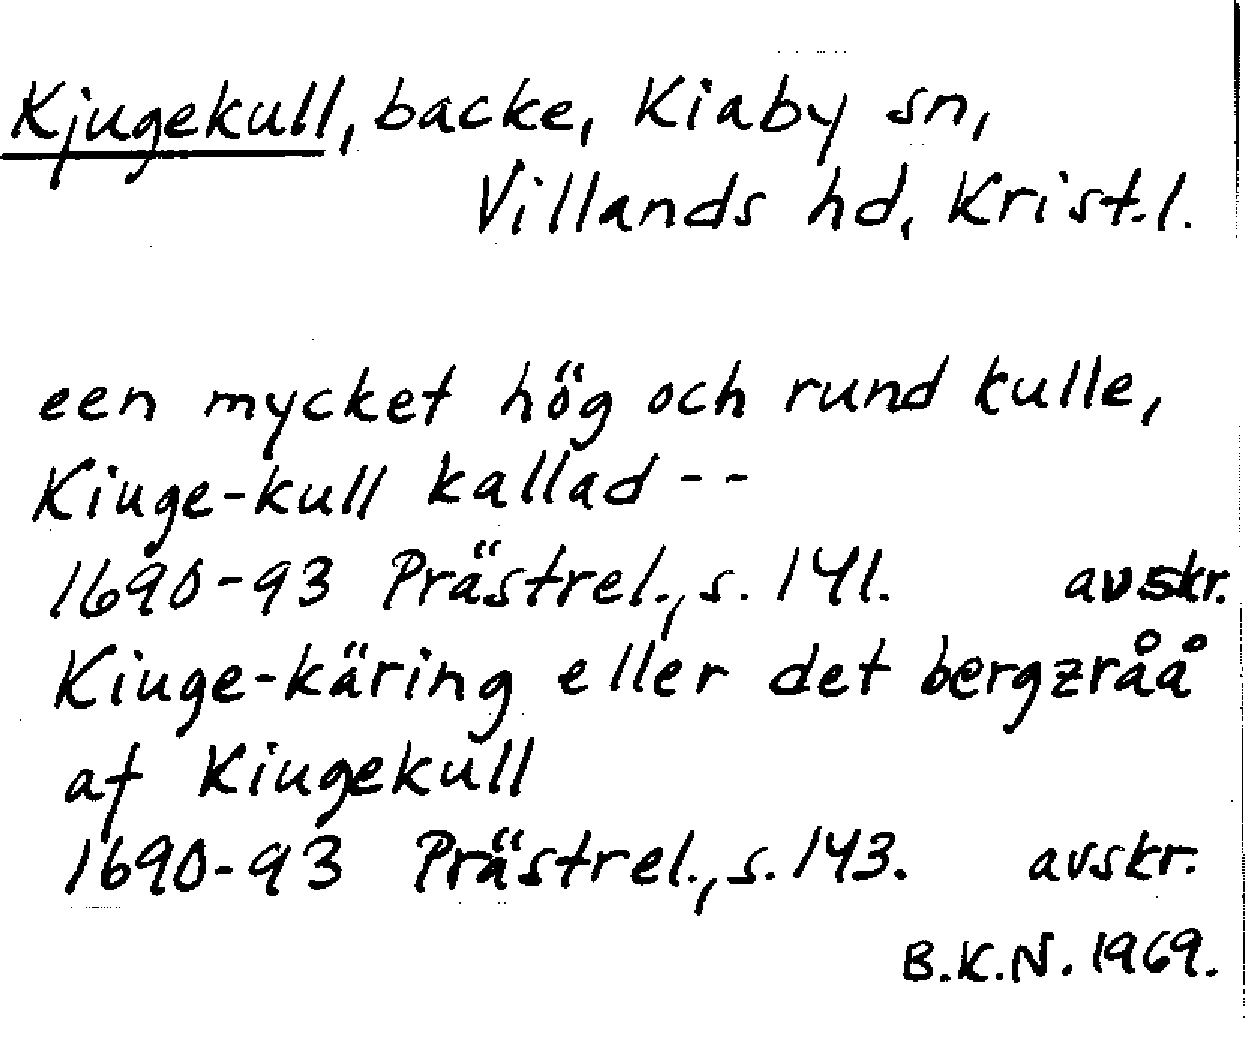 Kjugekull, backe, Kiaby sn,
Villands hd, Krist.l.
een mycket hög och rund kulle,
Kiuge-kull kallad --
1690-93 Prästrel., s. 141. avskr.
Kiuge-käring eller det bergzråå
af Kiugekull
1690-93 Prästrel., s. 143. avskr.
B.K.N. 1969.